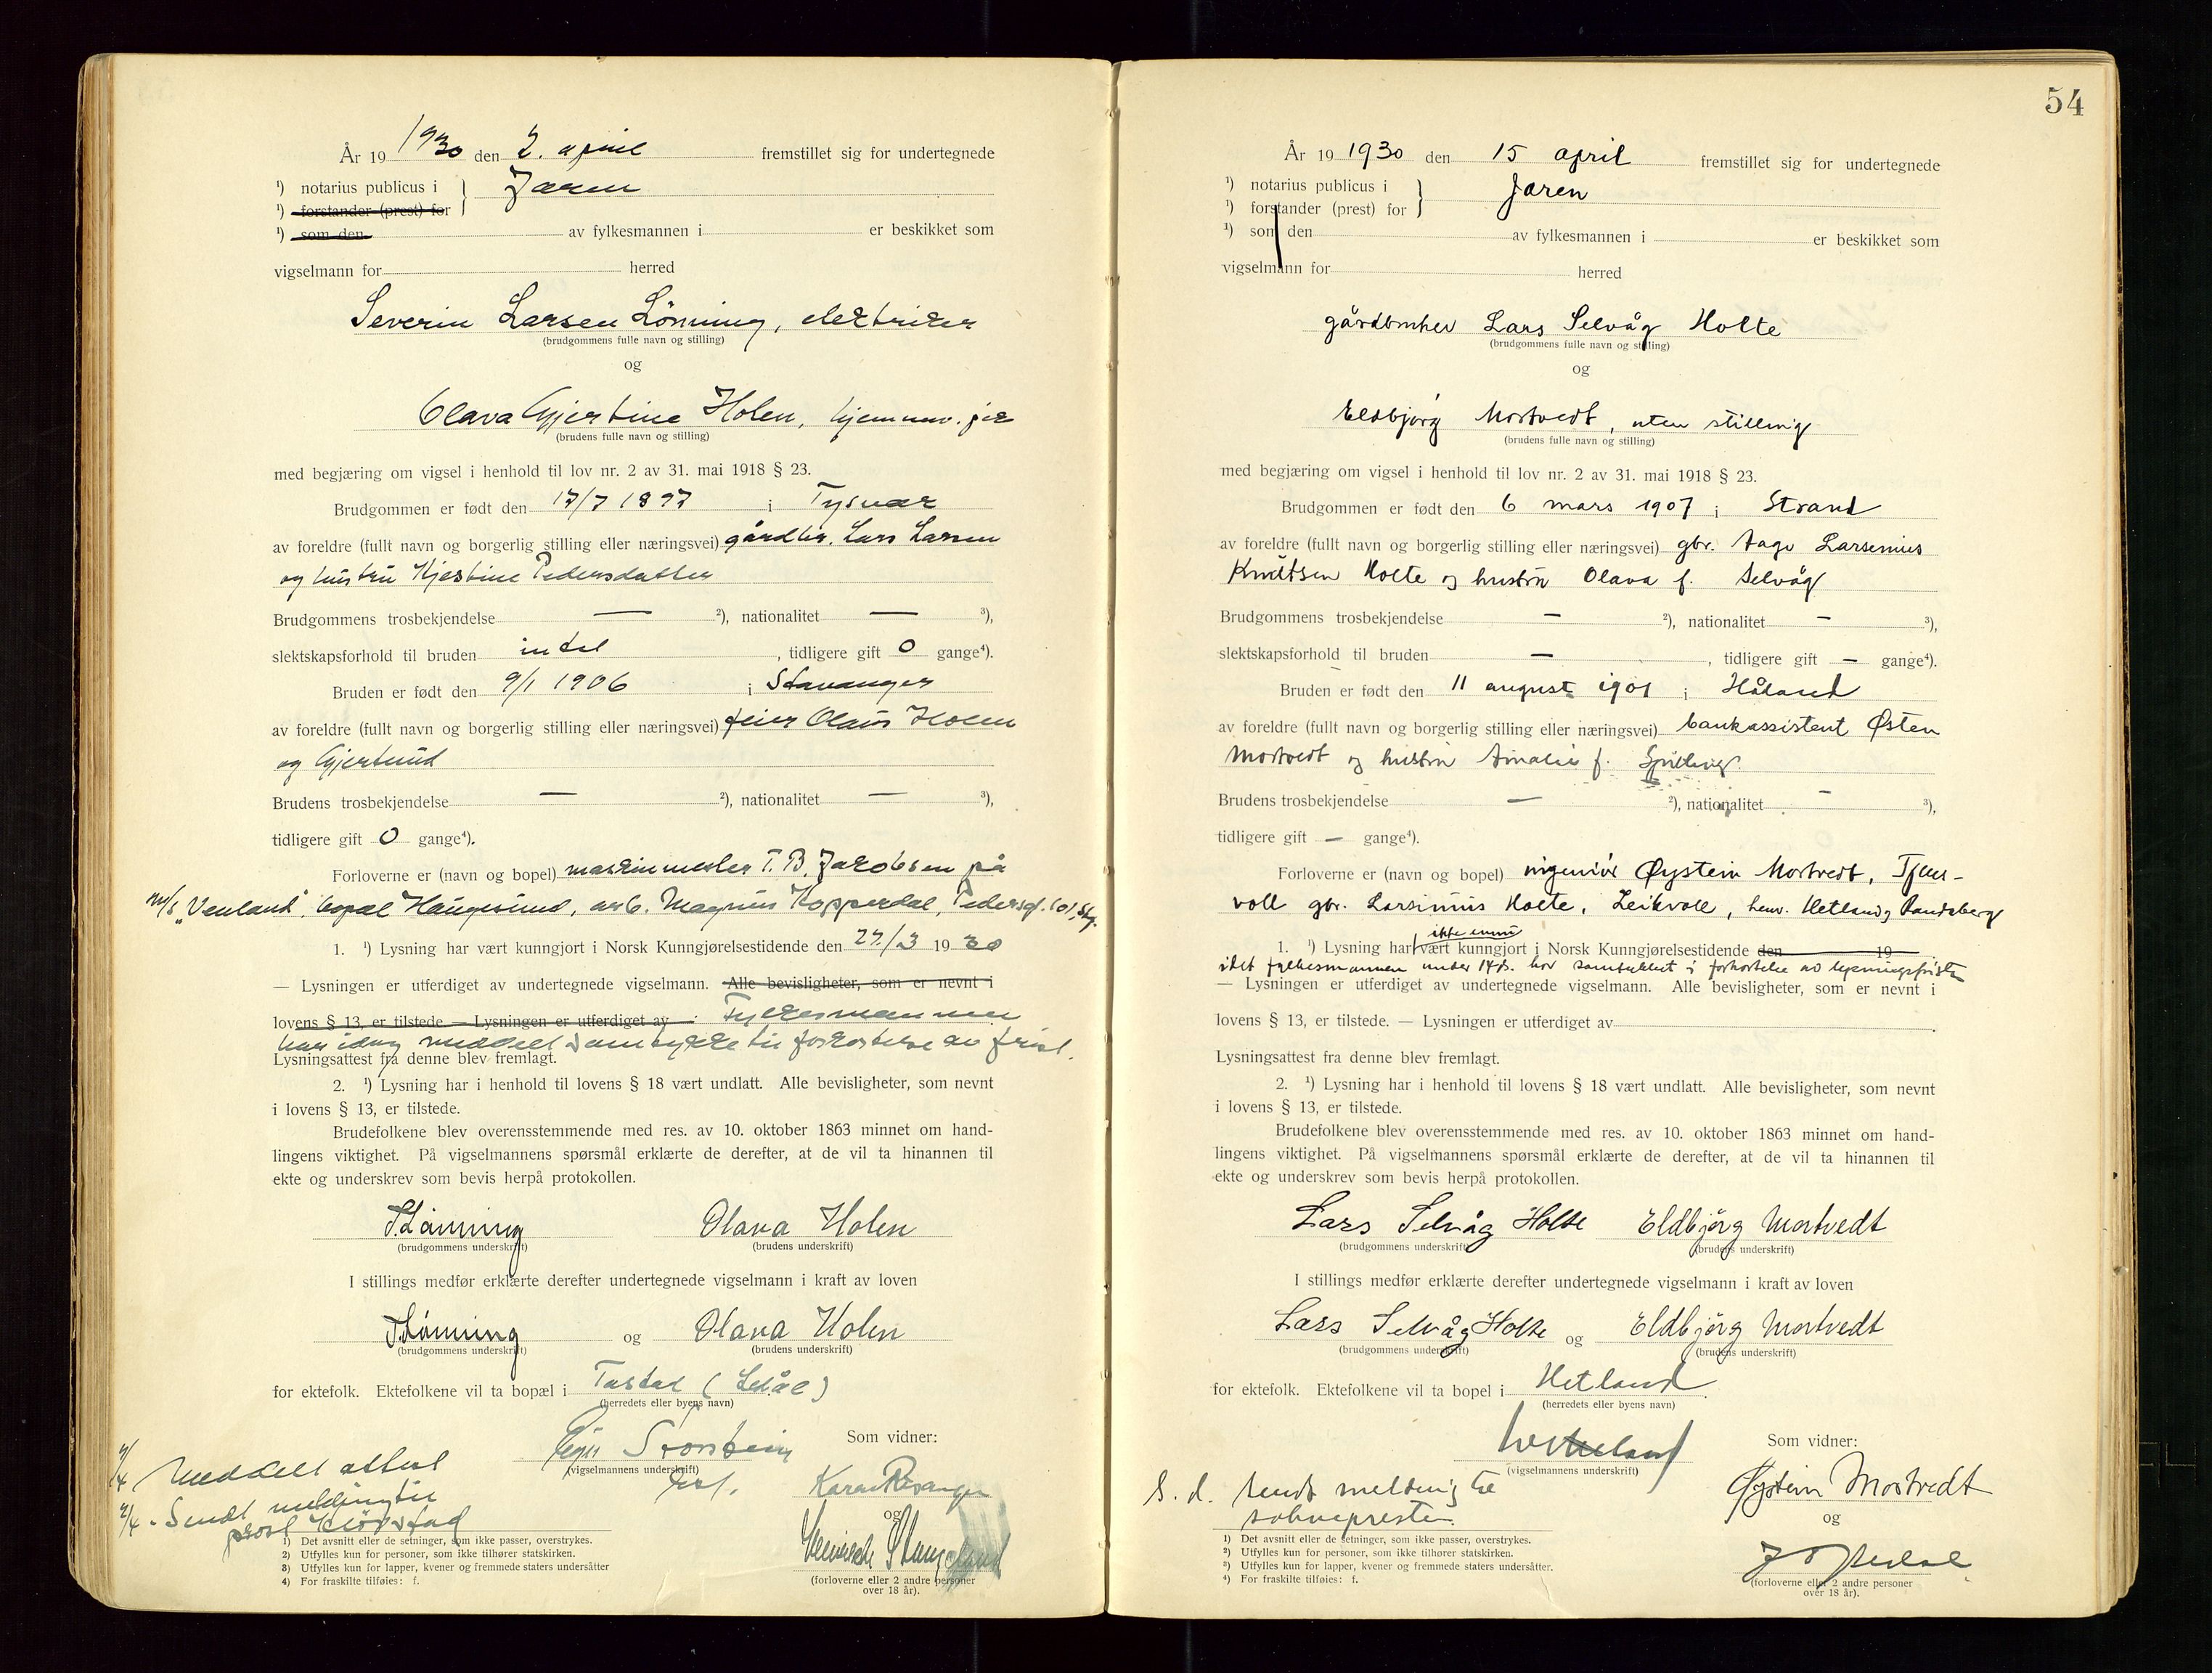 År 19 1930 den 2. april fremstillet sig for undertegnede
¹) notarius publicus i } Jæren
¹) forstander (prest) for
¹) som den av fylkesmannen i er beskikket som
vigselmann for herred
Severin Larsen Lönning, elektriker
(brudgommens fulle navn og stilling)
og
Olava Gjertine Holen, hjemmev. pik
(brudens fulle navn og stilling)
med begjæring om vigsel i henhold til lov nr. 2 av 31. mai 1918 § 23.
Brudgommen er født den 17/7 1897 i Tysvær
av foreldre (fullt navn og borgerlig stilling eller næringsvei) gårdbr. Lars Larsen
og hustru Kjerstine Pedersdatter
Brudgommens trosbekjendelse — ²), nationalitet — ³),
slektskapsforhold til bruden intet, tidligere gift 0 gange⁴).
Bruden er født den 9/1 1906 i Stavanger
av foreldre (fullt navn og borgerlig stilling eller næringsvei) feier Olaus Holen
og Gjertrud
Brudens trosbekjendelse — ²), nationalitet — ³),
tidligere gift 0 gange⁴).
Forloverne er (navn og bopel) maskinmester T. B. Jakobsen på
m/s „Venland", bopæl Haugesund, arb. Magnus Kopperdal, Pedersgt. 101, Stg.
1. ¹) Lysning har vært kunngjort i Norsk Kunngjørelsestidende den 27/3 19 30
— Lysningen er utferdiget av undertegnede vigselmann. Alle bevisligheter, som er nevnt i
lovens § 13, er tilstede — Lysningen er utferdiget av : Fylkesmannen
har idag meddelt samtykke til forkortelse av frist.
Lysningsattest fra denne blev fremlagt.
2. ¹) Lysning har i henhold til lovens § 18 vært undlatt. Alle bevisligheter, som nevnt
i lovens § 13, er tilstede.
Brudefolkene blev overensstemmende med res. av 10. oktober 1863 minnet om hand-
lingens viktighet. På vigselmannens spørsmål erklærte de derefter, at de vil ta hinannen til
ekte og underskrev som bevis herpå protokollen.
S. Lönning Olava Holen
(brudgommens underskrift) (brudens underskrift)
I stillings medfør erklærte derefter undertegnede vigselmann i kraft av loven
S. Lönning og Olava Holen
(brudgommens underskrift) (brudens underskrift)
for ektefolk. Ektefolkene vil ta bopæl i Tastad
(herredets eller byens navn)
Storstein Som vidner:
(vigselmannens underskrift)
Karen Revanger
og
(forloverne eller 2 andre personer
over 18 år).
2/4 Meddelt attest
2/4 - Sendt melding til
prost
1) Det avsnitt eller de setninger, som ikke passer, overstrykes.
2) Utfylles kun for personer, som ikke tilhører statskirken.
3) Utfylles kun for lapper, kvener og fremmede staters undersåtter
4) For fraskilte tilføies: f.
54
År 19 1930 den 15 april fremstillet sig for undertegnede
¹) notarius publicus i } Jæren
¹) forstander (prest) for
¹) som den av fylkesmannen i er beskikket som
vigselmann for herred
gårdbruker Lars Selvåg Holte
(brudgommens fulle navn og stilling)
og
Eldbjørg Mortvedt, uten stilling
(brudens fulle navn og stilling)
med begjæring om vigsel i henhold til lov nr. 2 av 31. mai 1918 § 23.
Brudgommen er født den 6 mars 1907 i Strand
av foreldre (fullt navn og borgerlig stilling eller næringsvei) gbr. Aage Larsenius
Knudtsen Holte og hustru Olava f. Selvåg
Brudgommens trosbekjendelse — ²), nationalitet — ³),
slektskapsforhold til bruden —, tidligere gift — gange⁴).
Bruden er født den 11 august 1901 i Håland
av foreldre (fullt navn og borgerlig stilling eller næringsvei) bankassistent Østen
Mortvedt og hustru Amalie f. Spilling.
Brudens trosbekjendelse — ²), nationalitet — ³),
tidligere gift — gange⁴).
Forloverne er (navn og bopel) ingeniør Øystein Mortvedt, Tjens-
voll gbr. Larsinius Holte, Leikvoll, henv. Hetland og Randaberg
ikke ennu
1. ¹) Lysning har vært kunngjort i Norsk Kunngjørelsestidende den 19
idet fylkesmannen under 14 ds. har samtykket i forkortelse av lysningsfristen
— Lysningen er utferdiget av undertegnede vigselmann. Alle bevisligheter, som er nevnt i
lovens § 13, er tilstede. — Lysningen er utferdiget av .
Lysningsattest fra denne blev fremlagt.
2. ¹) Lysning har i henhold til lovens § 18 vært undlatt. Alle bevisligheter, som nevnt
i lovens § 13, er tilstede.
Brudefolkene blev overensstemmende med res. av 10. oktober 1863 minnet om hand-
lingens viktighet. På vigselmannens spørsmål erklærte de derefter, at de vil ta hinannen til
ekte og underskrev som bevis herpå protokollen.
Lars Selvåg Holte Eldbjörg Mortvedt
(brudgommens underskrift) (brudens underskrift)
I stillings medfør erklærte derefter undertegnede vigselmann i kraft av loven
Lars Selvåg Holte og Eldbjörg Mortvedt
(brudgommens underskrift) (brudens underskrift)
for ektefolk. Ektefolkene vil ta bopel i Hetland
(herredets eller byens navn)
Som vidner:
(vigselmannens underskrift)
S. d. sendt melding til
sokneprest
Øystein Mortvedt
og
(forloverne eller 2 andre personer
over 18 år).
¹) Det avsnitt eller de setninger, som ikke passer, overstrykes.
²) Utfylles kun for personer, som ikke tilhører statskirken.
³) Utfylles kun for lapper, kvener og fremmede staters undersåtter.
⁴) For fraskilte tilføies: f.